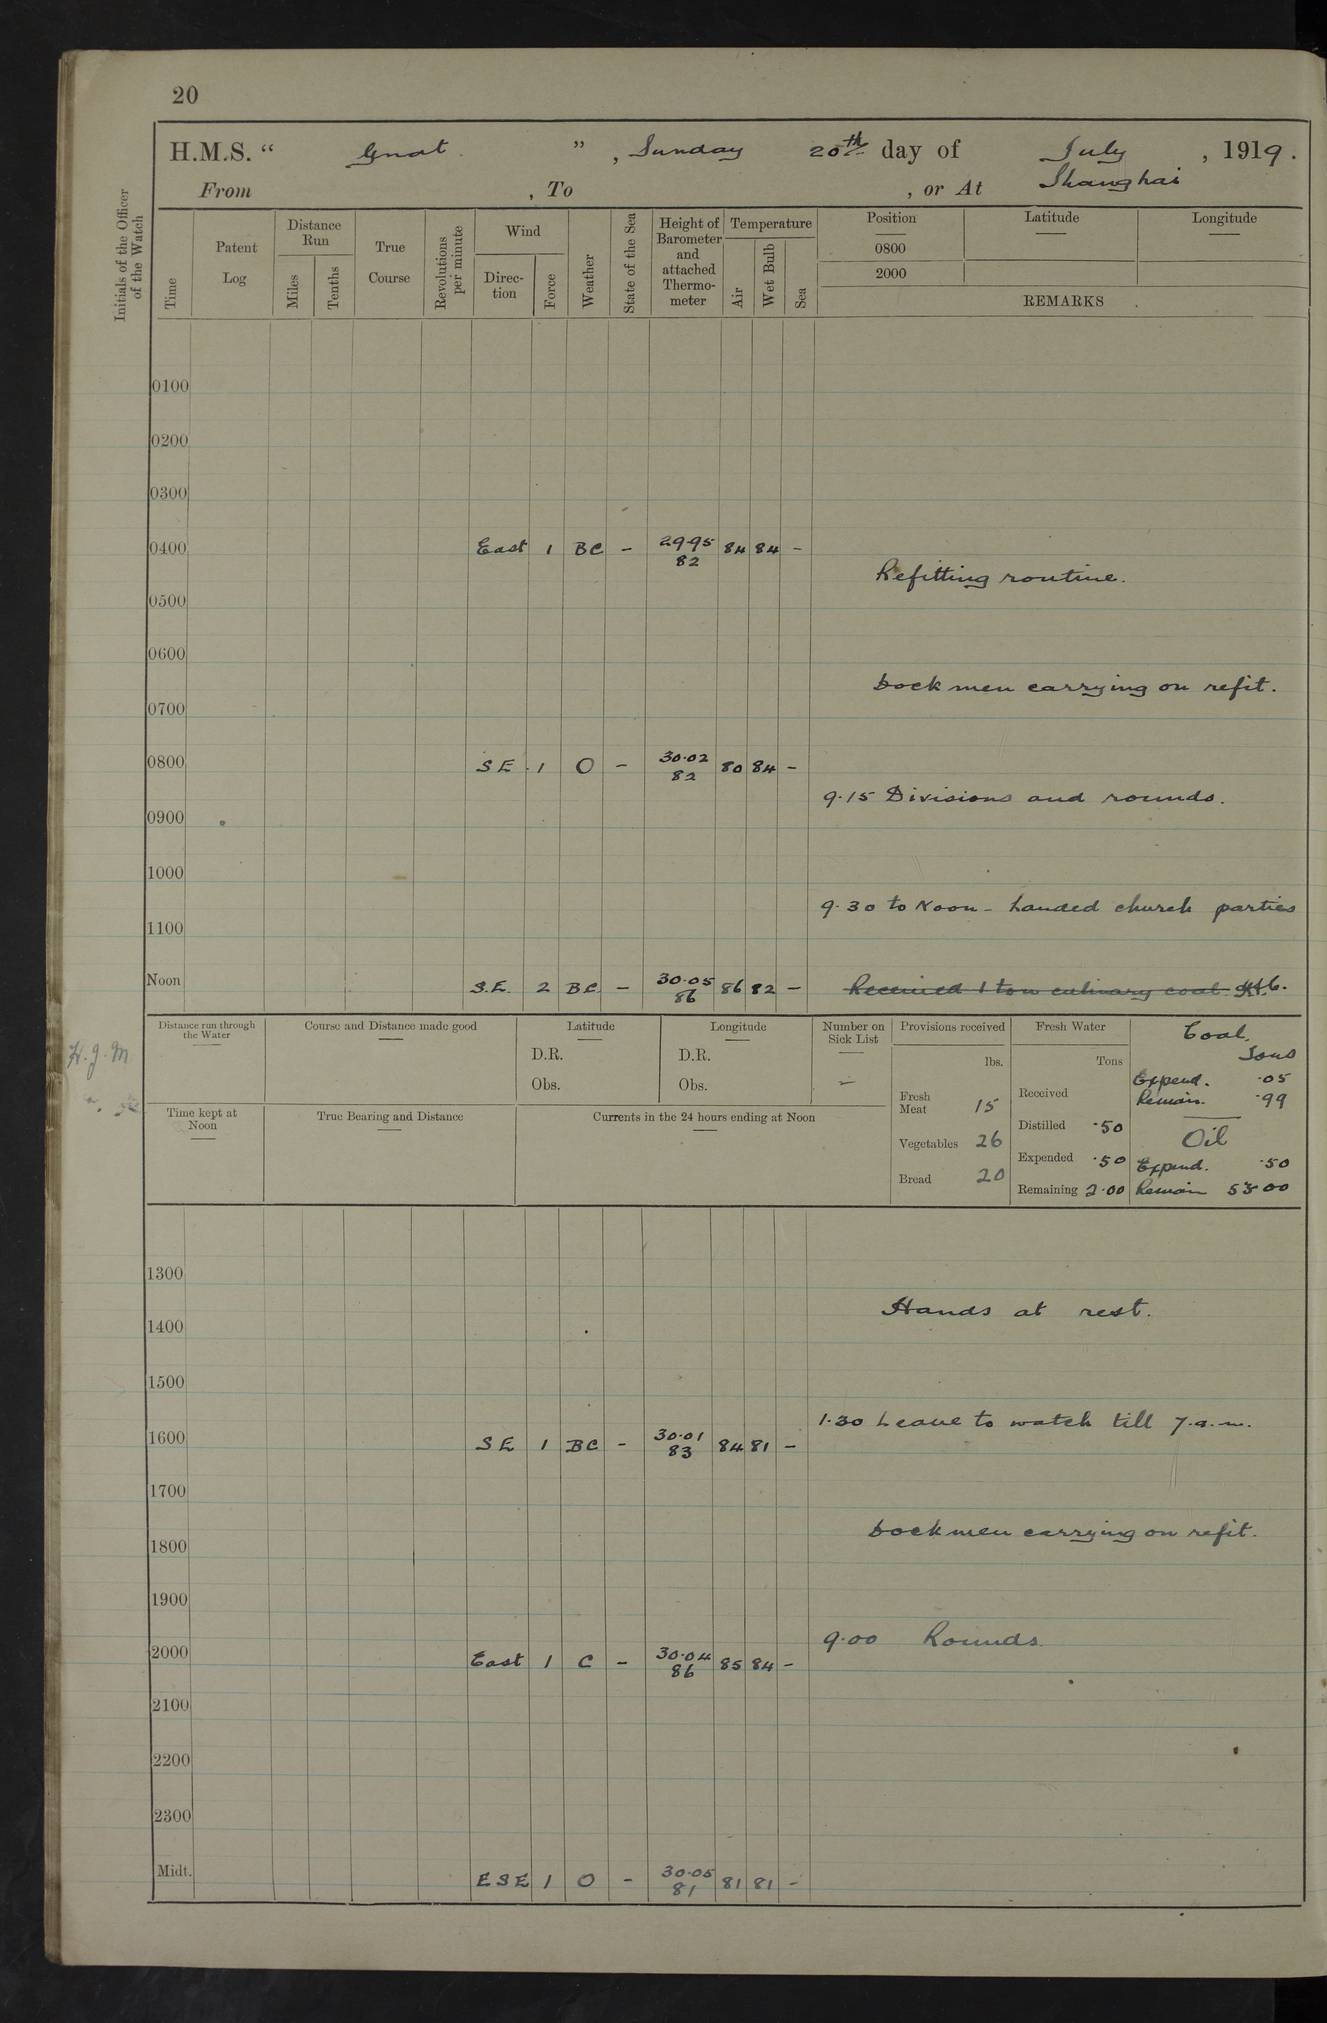 20
H.M.S. “ Gnat ” , Sunday 20th day of July , 1919 .
From , To , or At Shanghai
Initials of the Officer of the Watch
Time
Patent Log
Distance Run
Miles
Tenths
True Course
Revolutions per minute
Wind
Direc- tion
Force
Weather
State of the Sea
Height of Barometer and attached Thermo- meter
Temperature
Air
Wet Bulb
Sea
Position Latitude Longitude
0800
2000
REMARKS
0100
0200
0300
0400 East 1 BC – 29.95 82 84 84 –
Refitting routine.
0500
0600
Dockmen carrying on refit.
0700
0800 SE 1 O – 30.02 82 80 84 –
9.15 Divisions and rounds.
0900
1000
9.30 to Noon – Landed church parties
1100
Noon S.E. 2 BC – 30.05 86 86 82 – Received 1 ton culinary coal
Distance run through the Water
Course and Distance made good
Latitude
D.R.
Obs.
Longitude
D.R.
Obs.
Number on Sick List
–
Provisions received
lbs.
Fresh Meat 15
Vegetables 26
Bread 20
Fresh Water
Tons
Received
Distilled .50
Expended .50
Remaining 2.00
Coal.
Tons
Expend. .05
Remain. .99
Oil
Expend. .50
Remain 53.00
H.J.M
Time kept at Noon
True Bearing and Distance
Currents in the 24 hours ending at Noon
1300
Hands at rest.
1400
1500
1.30 Leave to watch till 7.a.m.
1600 SE 1 BC – 30.01 83 84 81 –
1700
Dockmen carrying on refit.
1800
1900
9.00 Rounds.
2000 East 1 C – 30.04 86 85 84 –
2100
2200
2300
Midt. ESE 1 O – 30.05 81 81 81 –